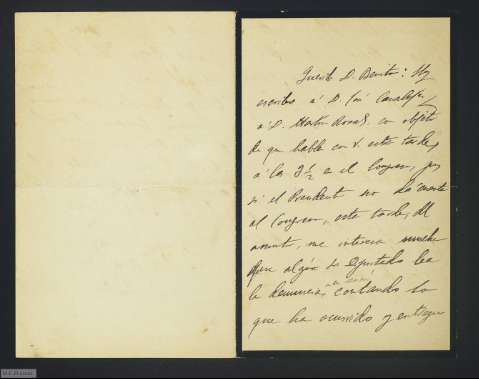 Querido D. Benito: Hoy
escribo á D. José Canalejas,
á D. Martín Rosales, con objeto
de que hable con V. esta tarde,
á las 3 1/2 en el Congreso, pues
si el Presidente no dá cuenta
al Congreso, esta tarde, del
asunto, me interesa mucho
que algún Sr. Diputado lea
la denuncia, contando lo
que ha ocurrido y entregue